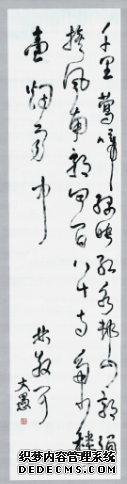 千里鶯啼綠映紅水村山郭酒
旗風南朝四百八十寺多少樓
臺煙雨中
大愚
织梦内容管理系统
DEDECMS.COM